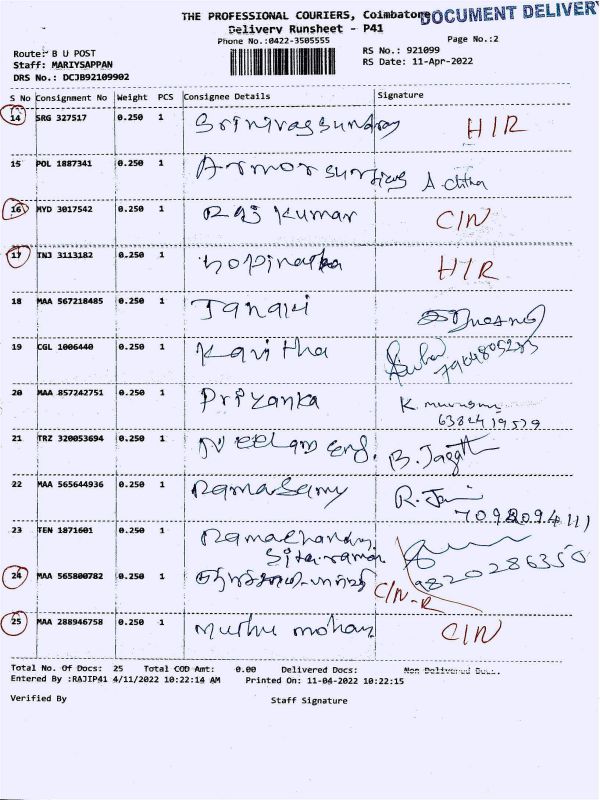 THE PROFESSIONAL COURIERS, Coimbatore
DOCUMENT DELIVERY
Delivery Runsheet - P41
Phone No.:0422-3505555
Page No.:2
Route: B U POST
RS No.: 921099
Staff: MARIYSAPPAN
RS Date: 11-Apr-2022
DRS No.: DCJB92109902
S No Consignment No Weight PCS Consignee Details Signature
14 SRG 327517 0.250 1 Srinivassundray H/R
15 POL 1887341 0.250 1 Armor A Chitra
16 MYD 3017542 0.250 1 Raj Kumar C/N
17 TNJ 3113182 0.250 1 Gopinatha H/R
18 MAA 567218485 0.250 1 Janaki
19 CGL 1006440 0.250 1 Kavitha 7904805283
20 MAA 857242751 0.250 1 Priyanka K. murugan
6382419529
21 TRZ 320053694 0.250 1 Neelam Eng. B. Jagath
22 MAA 565644936 0.250 1 Ramasamy R. Jani
7098209411)
23 TEN 1871601 0.250 1 Ramachandra
Sitaraman 9820286350
24 MAA 565800782 0.250 1 C/N-R
25 MAA 288946758 0.250 1 Muthu mohan C/N
Total No. Of Docs: 25 Total COD Amt: 0.00 Delivered Docs: Non Delivered Docs.
Entered By :RAJIP41 4/11/2022 10:22:14 AM Printed On: 11-04-2022 10:22:15
Verified By Staff Signature